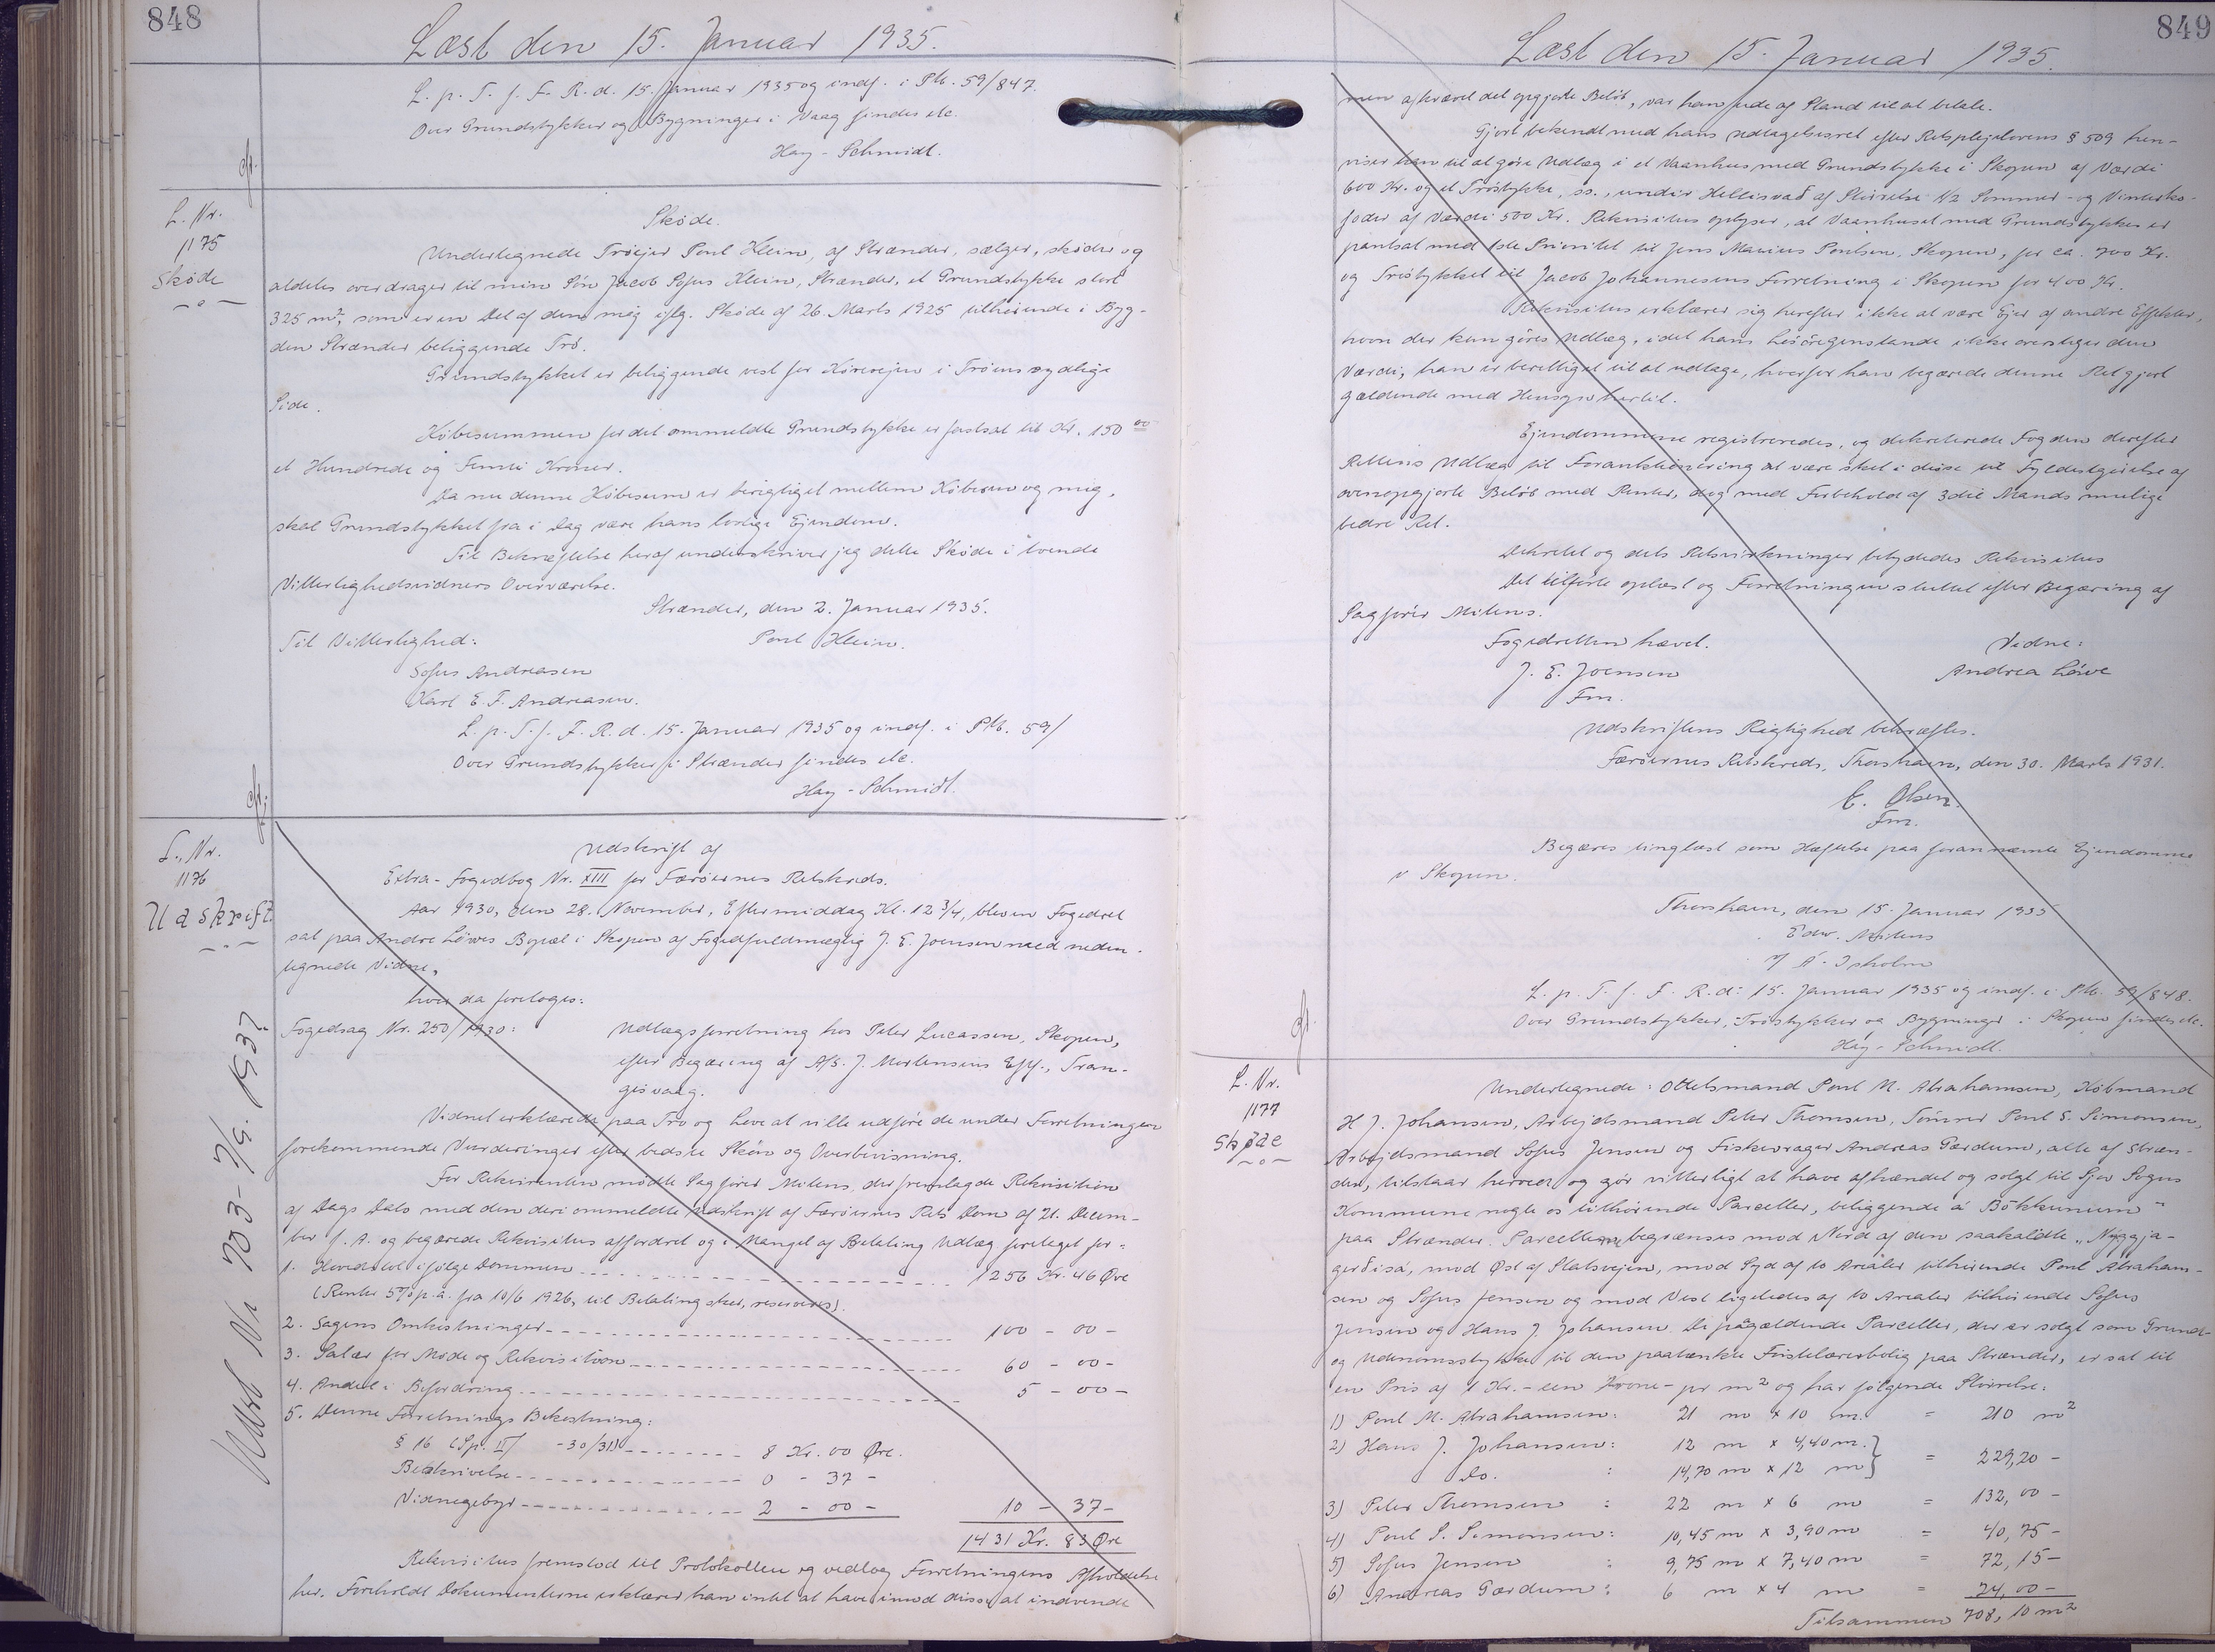 848
Læst den 15. Januar 1935.
L. p. T. f. F. R. d. 15. Januar 1935 og indf. i Ptk. 59/847.
Over Grundstykker og Bygninger i Waag findes etc.
Hay-Schmidt.
L. Nr.
1175
Skøde
Skøde.
Undertegnede Trøejer Poul Klein, af Strænder, sælger, skøder og
aldeles overdrager til min Søn Jacob Sofus Klein, Strænder, et Grundstykke stort
325 m², som er en Del af den mig iflg. Skøde af 26. Marts 1925 tilhørende i Byg-
den Strænder beliggende Trø.
Grundstykket er beliggende vest for Kørevejen i Trøens sydlige
Side.
Købesummen for det ommeldte Grundstykke er fastsat til Kr. 150 00
et Hundrede og Femti Kroner.
Da nu denne Købesum er berigtiget mellem Køberen og mig,
skal Grundstykket fra i Dag være hans lovlige Ejendom.
Til Bekræftelse heraf underskriver jeg dette Skøde i tvende
Vitterlighedsvidners Overværelse.
Strænder, den 2. Januar 1935.
Til Vitterlighed: Poul Klein.
Sofus Andreasen
Karl E. F. Andreasen.
L. p. T. f. F. R. d. 15. Januar 1935 og indf. i Ptk. 59/
Over Grundstykker i Strænder findes etc.
Hay-Schmidt.
L. Nr.
1176
Udskrift
Udskrift af
Extra-Fogedbog Nr. XIII for Færøernes Retskreds.
Aar 1930, den 28. November, Eftermiddag Kl. 12 3/4, blev en Fogedret
sat paa Andre Løwes Bopæl i Skopen af Fogedfuldmægtig J. E. Joensen med neden-
tegnede Vidne,
hvor da foretoges:
Fogedsag Nr. 250/1930: Udlægsforretning hos Peter Lucassen, Skopen,
efter Begæring af A/S. J. Mortensens Eftf., Tran-
gisvaag.
Vidnet erklærede paa Tro og Love at ville udføre de under Forretningen
forekommende Vurderinger efter bedste Skøn og Overbevisning.
For Rekvirenten mødte Sagfører Mitens, der fremlagde Rekvisition
af Dags Dato med den deri ommeldte Udskrift af Færøernes Rets Dom af 21. Decem-
ber f. A. og begærede Rekvisitus affordret og i Mangel af Betaling Udlæg foretaget for:
1. Hovedstol ifølge Dommen 1256 Kr. 46 Øre
(Renter 5% p. a. fra 10/6 1926, til Betaling sker, reserveres).
2. Sagens Omkostninger 100 - 00 -
3. Salær for Møde og Rekvisition 60 - 00 -
4. Andel i Befordring 5 - 00 -
5. Denne Forretnings Bekostning:
§ 16 (Sp. II) - 30/31) 8 Kr. 00 Øre.
Beskrivelse 0 - 37 -
Vidnegebyr 2 - 00 - 10 - 37 -
1431 Kr. 83 Øre
Rekvisitus fremstod til Protokollen og vedtog Forretningens Afholdelse
her. Foreholdt Dokumenterne erklærer han intet at have imod disse at indvende
Udsl Nr 703 - 7/9. 1937
849
Læst den 15. Januar 1935.
men afkrævet det opgjorte Beløb, var han ude af Stand til at betale.
Gjort bekendt med hans Udtagelsesret efter Retsplejelovens § 509 hen-
viser han til at gøre Udlæg i et Vaanhus med Grundstykke i Skopen af Værdi
600 Kr. og et Trøstykke, ss., under Hellisvað af Størrelse 1/2 Sommer- og Vinterko-
foder af Værdi 500 Kr. Rekvisitus oplyser, at Vaanhuset med Grundstykket er
pantsat med 1ste Prioritet til Jens Marius Poulsen, Skopen, for ca. 700 Kr.
og Trøstykket til Jacob Johannesens Forretning i Skopen for 400 Kr.
Rekvisitus erklærer sig herefter ikke at være Ejer af andre Effekter,
hvori der kan gøres Udlæg, idet hans Løsøregenstande ikke overstiger den
Værdi, han er berettiget til at udtage, hvorfor han begærede denne Ret gjort
gældende med Hensyn hertil.
Ejendommene registreredes, og dekreterede Fogden derefter
Rettens Udlæg til Forauktionering at være sket i disse til Fyldestgørelse af
ovenopgjorte Beløb med Renter, dog med Forbehold af 3die Mands mulige
bedre Ret.
Dekretet og dets Retsvirkninger betydedes Rekvisitus
Det tilførte oplæst og Forretningen sluttet efter Begæring af
Sagfører Mitens.
Fogedretten hævet. Vidne:
J. E. Joensen Andrea Løwe
Fm.
Udskriftens Rigtighed bekræftes.
Færøernes Retskreds, Thorshavn, den 30. Marts 1931.
E. Olsen.
Fm.
Begæres tinglæst som Hæftelse paa forannævnte Ejendomme
i Skopen.
Thorshavn, den 15. Januar 1935
Edw. Mitens
L. p. T. f. F. R. d: 15. Januar 1935 og indf. i Ptk. 59/848.
Over Grundstykker, Trøstykker og Bygninger i Skopen findes etc.
Hay-Schmidt.
L. Nr.
1177
Skøde
Undertegnede: Ottetsmand Poul M. Abrahamsen, Købmand
H J. Johansen, Arbejdsmand Peter Thomsen, Tømrer Poul S. Simonsen,
Arbejdsmand Sofus Jensen og Fiskevrager Andreas Gærdum, alle af Stræn-
der, tilstaar herved og gør vitterligt at have afhændet og solgt til Sjov Sogns
Kommune nogle os tilhørende Parceller, beliggende "á Bökkunum"
paa Strænder. Parcellerne begrænses mod Nord af den saakaldte "Nýggja-
gerðisá, mod Øst af Statsvejen, mod Syd af to Arealer tilhørende Poul Abraham-
sen og Sofus Jensen og mod Vest ligeledes af to Arealer tilhørende Sofus
Jensen og Hans J. Johansen. De pågældende Parceller, der er solgt som Grund-
og Udenomsstykke til den paatænkte Førstelærerbolig paa Strænder, er sat til
en Pris af 1 Kr. - een Krone - pr m² og har følgende Størrelse:
1) Poul M. Abrahamsen: 21 m x 10 m. = 210 m²
2) Hans J. Johansen: 12 m x 4,40 m.
Do. : 14,70 m x 12 m } = 229,20 -
3) Peter Thomsen : 22 m x 6 m = 132,00 -
4) Poul S. Simonsen: 10,45 m x 3,90 m = 40,75 -
5) Sofus Jensen : 9,75 m x 7,40 m = 72,15 -
6) Andreas Gærdum: 6 m x 4 m = 24,00 -
Tilsammen 708,10 m²